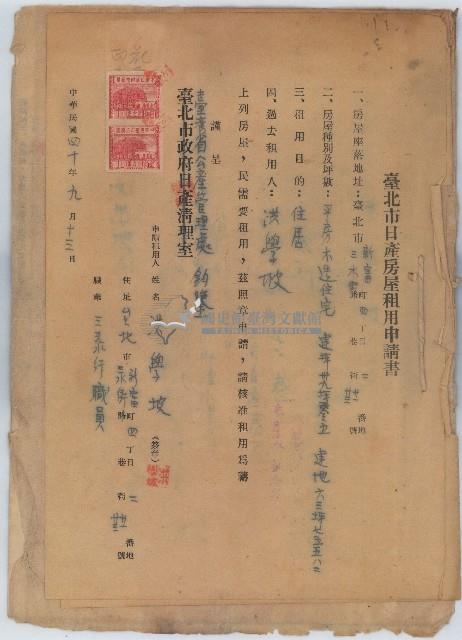 臺北市日產房屋租用申請書
一、房屋座落地址：臺北市新富町四丁目二番地
三水街巷廿號
二、房屋種別及坪數：平房木造住宅 建坪廿九坪 建地六三坪七五八二
三、租用目的：住居
四、過去租用人：洪學坡
上列房屋，民需要租用，茲照章申請，請核准租用為禱
謹呈
臺灣省公產管理處 鈞鑒
臺北市政府日產清理室
申請租用人 姓名 洪學坡 （簽章）
住址 臺北市新富町四丁目二番地
街巷廿號
職業 三泰行職員
中華民國四十年九月十三日
國史館臺灣文獻館
TAIWAN HISTORICA